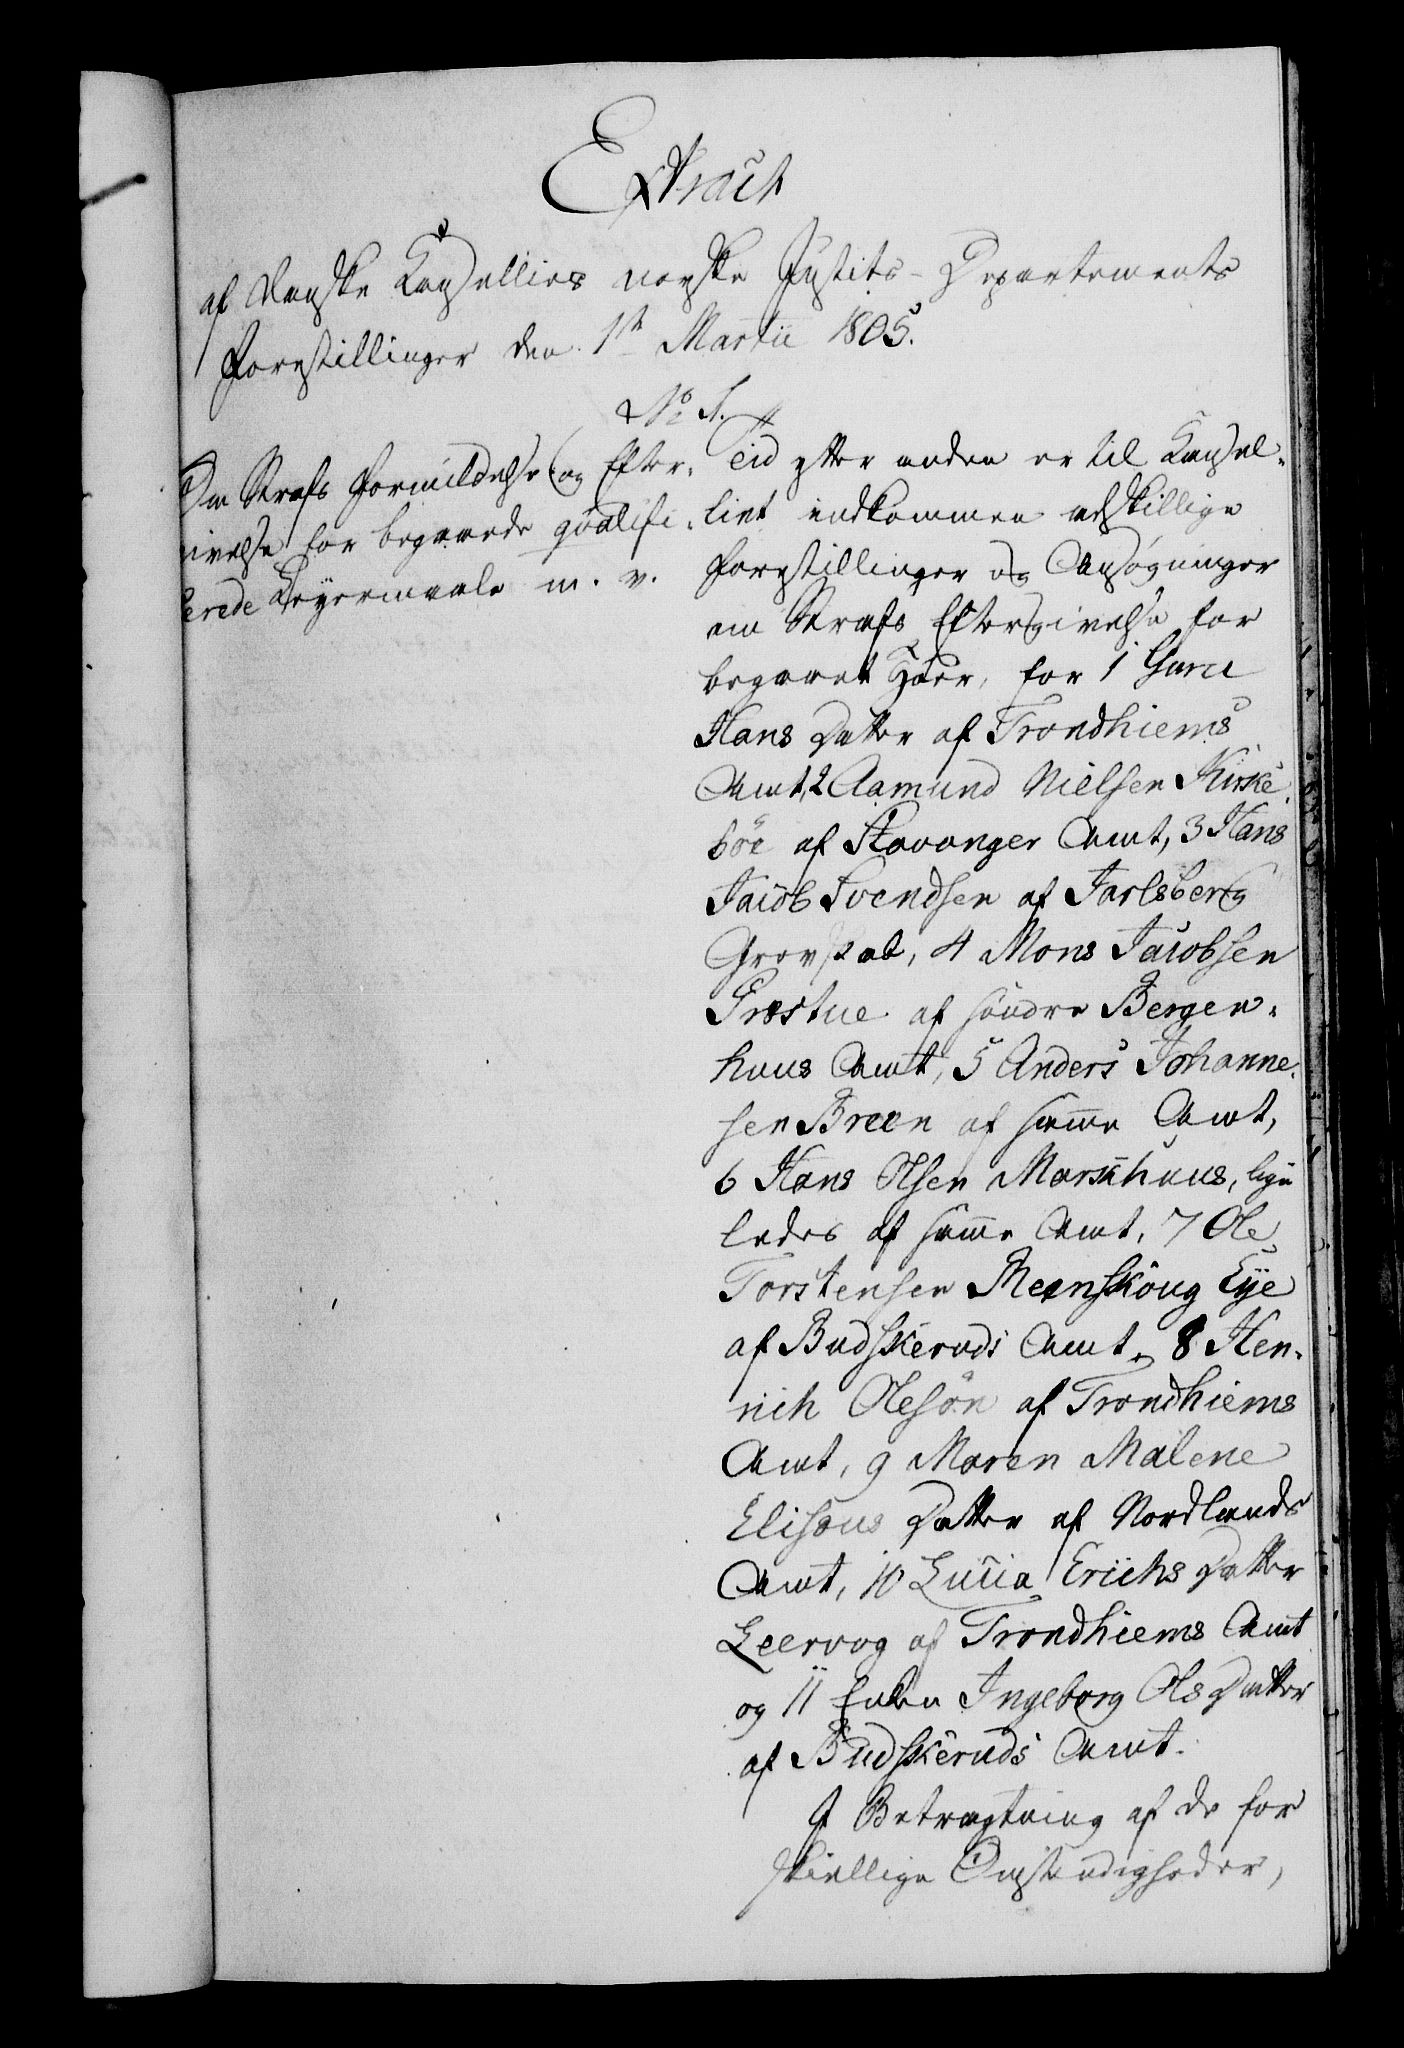 Extract
af danske Cancellies norske Justits-Departements
Forestillinger den 1st Martii 1805.
No 1.
Om Strafs Formildelse og Efter-
givelse for begaaede qualifi-
cerede Leyermaale m. v.
Tid efter anden er til Cancel-
liet indkommen adskillige
Forestillinger og Ansøgninger
om Strafs Eftergivelse for
begaaet Hoer, for 1 Guru
Hans Datter af Trondhiems
Amt, 2 Aamund Nielsen Kirke
böe af Stavanger Amt, 3 Hans
Jacob Svendsen af Jarlsberg
Grevskab, 4 Mons Jacobsen
Præstue af söndre Bergen-
huus Amt, 5 Anders Johanne-
sen Breen af samme Amt,
6 Hans Olsen Markhuus, lige
ledes af samme Amt, 7 Ole
Torstensen Reenskoug Eye
af Budskeruds Amt, 8 Hen-
rich Olesön af Trondhiems
Amt, 9 Maren Malene
Elisæus Datter af Nordlands
Amt, 10 Lucia Erichs Datter
Leervog af Trondhiems Amt
og 11 Enken Ingeborg Ols Datter
af Budskeruds Amt.
I Betragtning af de for
skiellige Omstændigheder,